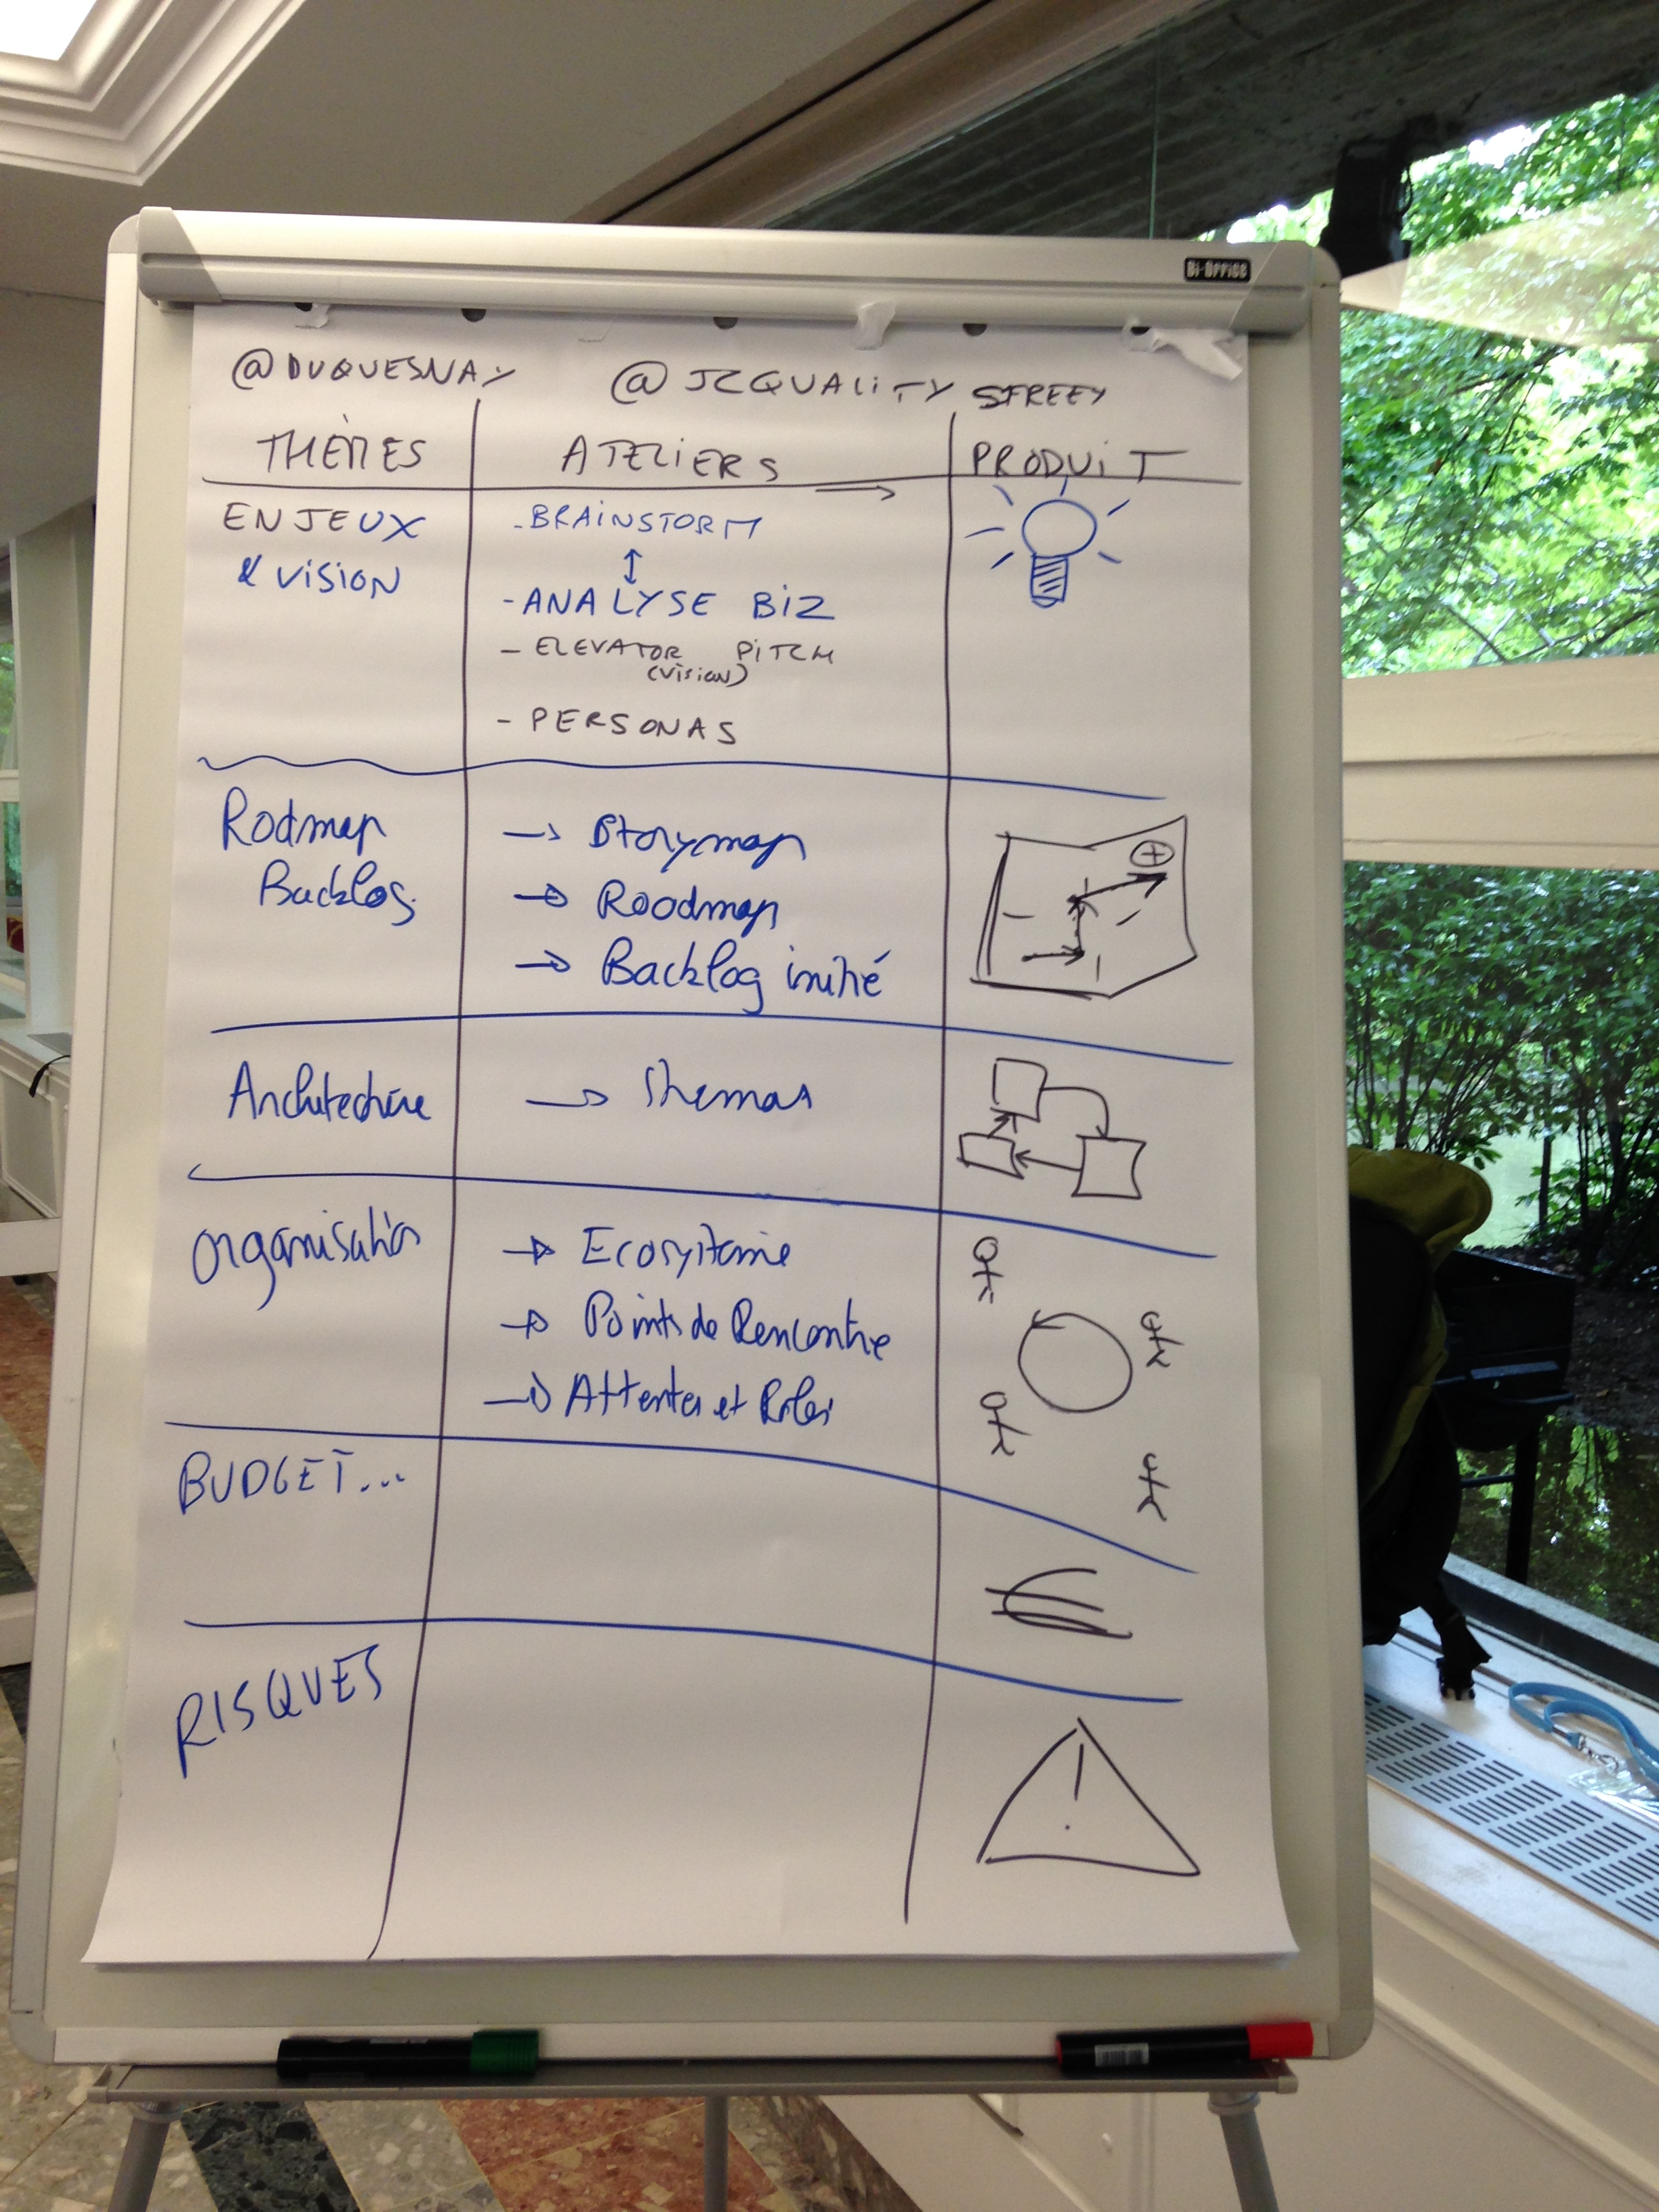 Bi-Office
@DUQUESNAY @JCQUALITYSTREET
THÈMES ATELIERS PRODUIT
ENJEUX & VISION
- BRAINSTORM
- ANALYSE BIZ
- ELEVATOR PITCH
(vision)
- PERSONAS
Rodmap
Backlog
→ Storymap
→ Roodmap
→ Backlog initié
Architecture → Shemas
Organisation
→ Ecosystème
→ Points de Rencontre
→ Attentes et Roles
BUDGET...
€
RISQUES
!